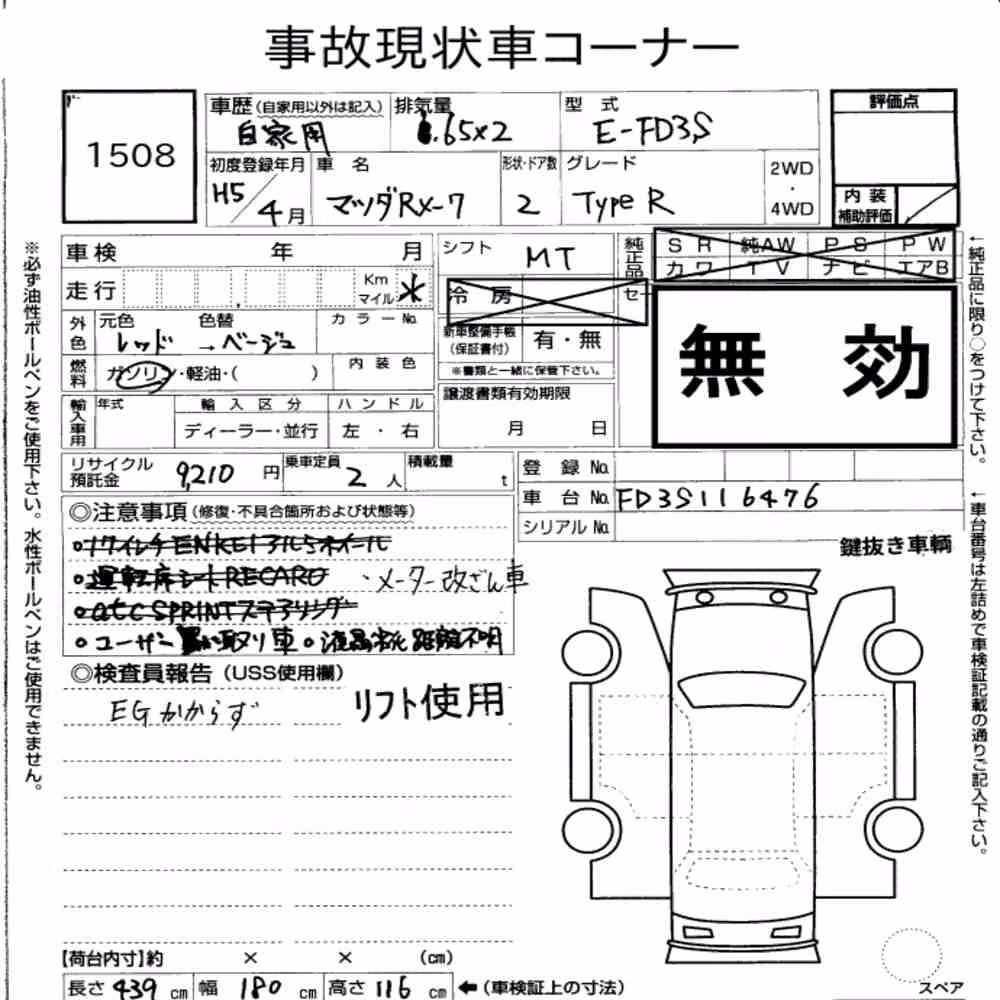 事故現状車コーナー
1508
車歴(自家用以外は記入) 排気量 型 式 評価点
自家用 .65×2 E-FD3S
初度登録年月 車 名 形状・ドア数 グレード 2WD
・
H5/4月 マツダRX-7 2 Type R 4WD
内装
補助評価
車検 年 月 シフト MT
純正品 SR 純AW PS PW
カワ TV ナビ エアB
走行 Km マイル 冷 房
外色 元色 色替 カラーNo.
レッド → ベージュ
新車整備手帳
(保証書付) 有・無
※書類と一緒に保管下さい。
無 効
燃料 ガソリン・軽油・( ) 内装色
譲渡書類有効期限
月 日
輸入車用 年式 輸入区分 ハンドル
ディーラー・並行 左・右
リサイクル
預託金 9,210 円 乗車定員 2 人 積載量 t
登 録 No.
車 台 No. FD3S116476
シリアル No.
◎注意事項(修復・不具合箇所および状態等)
鍵抜き車輌
・17インチENKEIアルミホイール
・運転席シートRECARO ・メーター改ざん車
・atc SPRINTステアリング
・ユーザー買い取り車 ・液晶劣化 距離不明
◎検査員報告(USS使用欄)
EGかからず リフト使用
【荷台内寸】約 × × (cm)
長さ 439 cm 幅 180 cm 高さ 116 cm ←(車検証上の寸法)
スペア
※必ず油性ボールペンをご使用下さい。水性ボールペンはご使用できません。
←純正品に限り○をつけて下さい。
←車台番号は左詰めで車検証記載の通りご記入下さい。